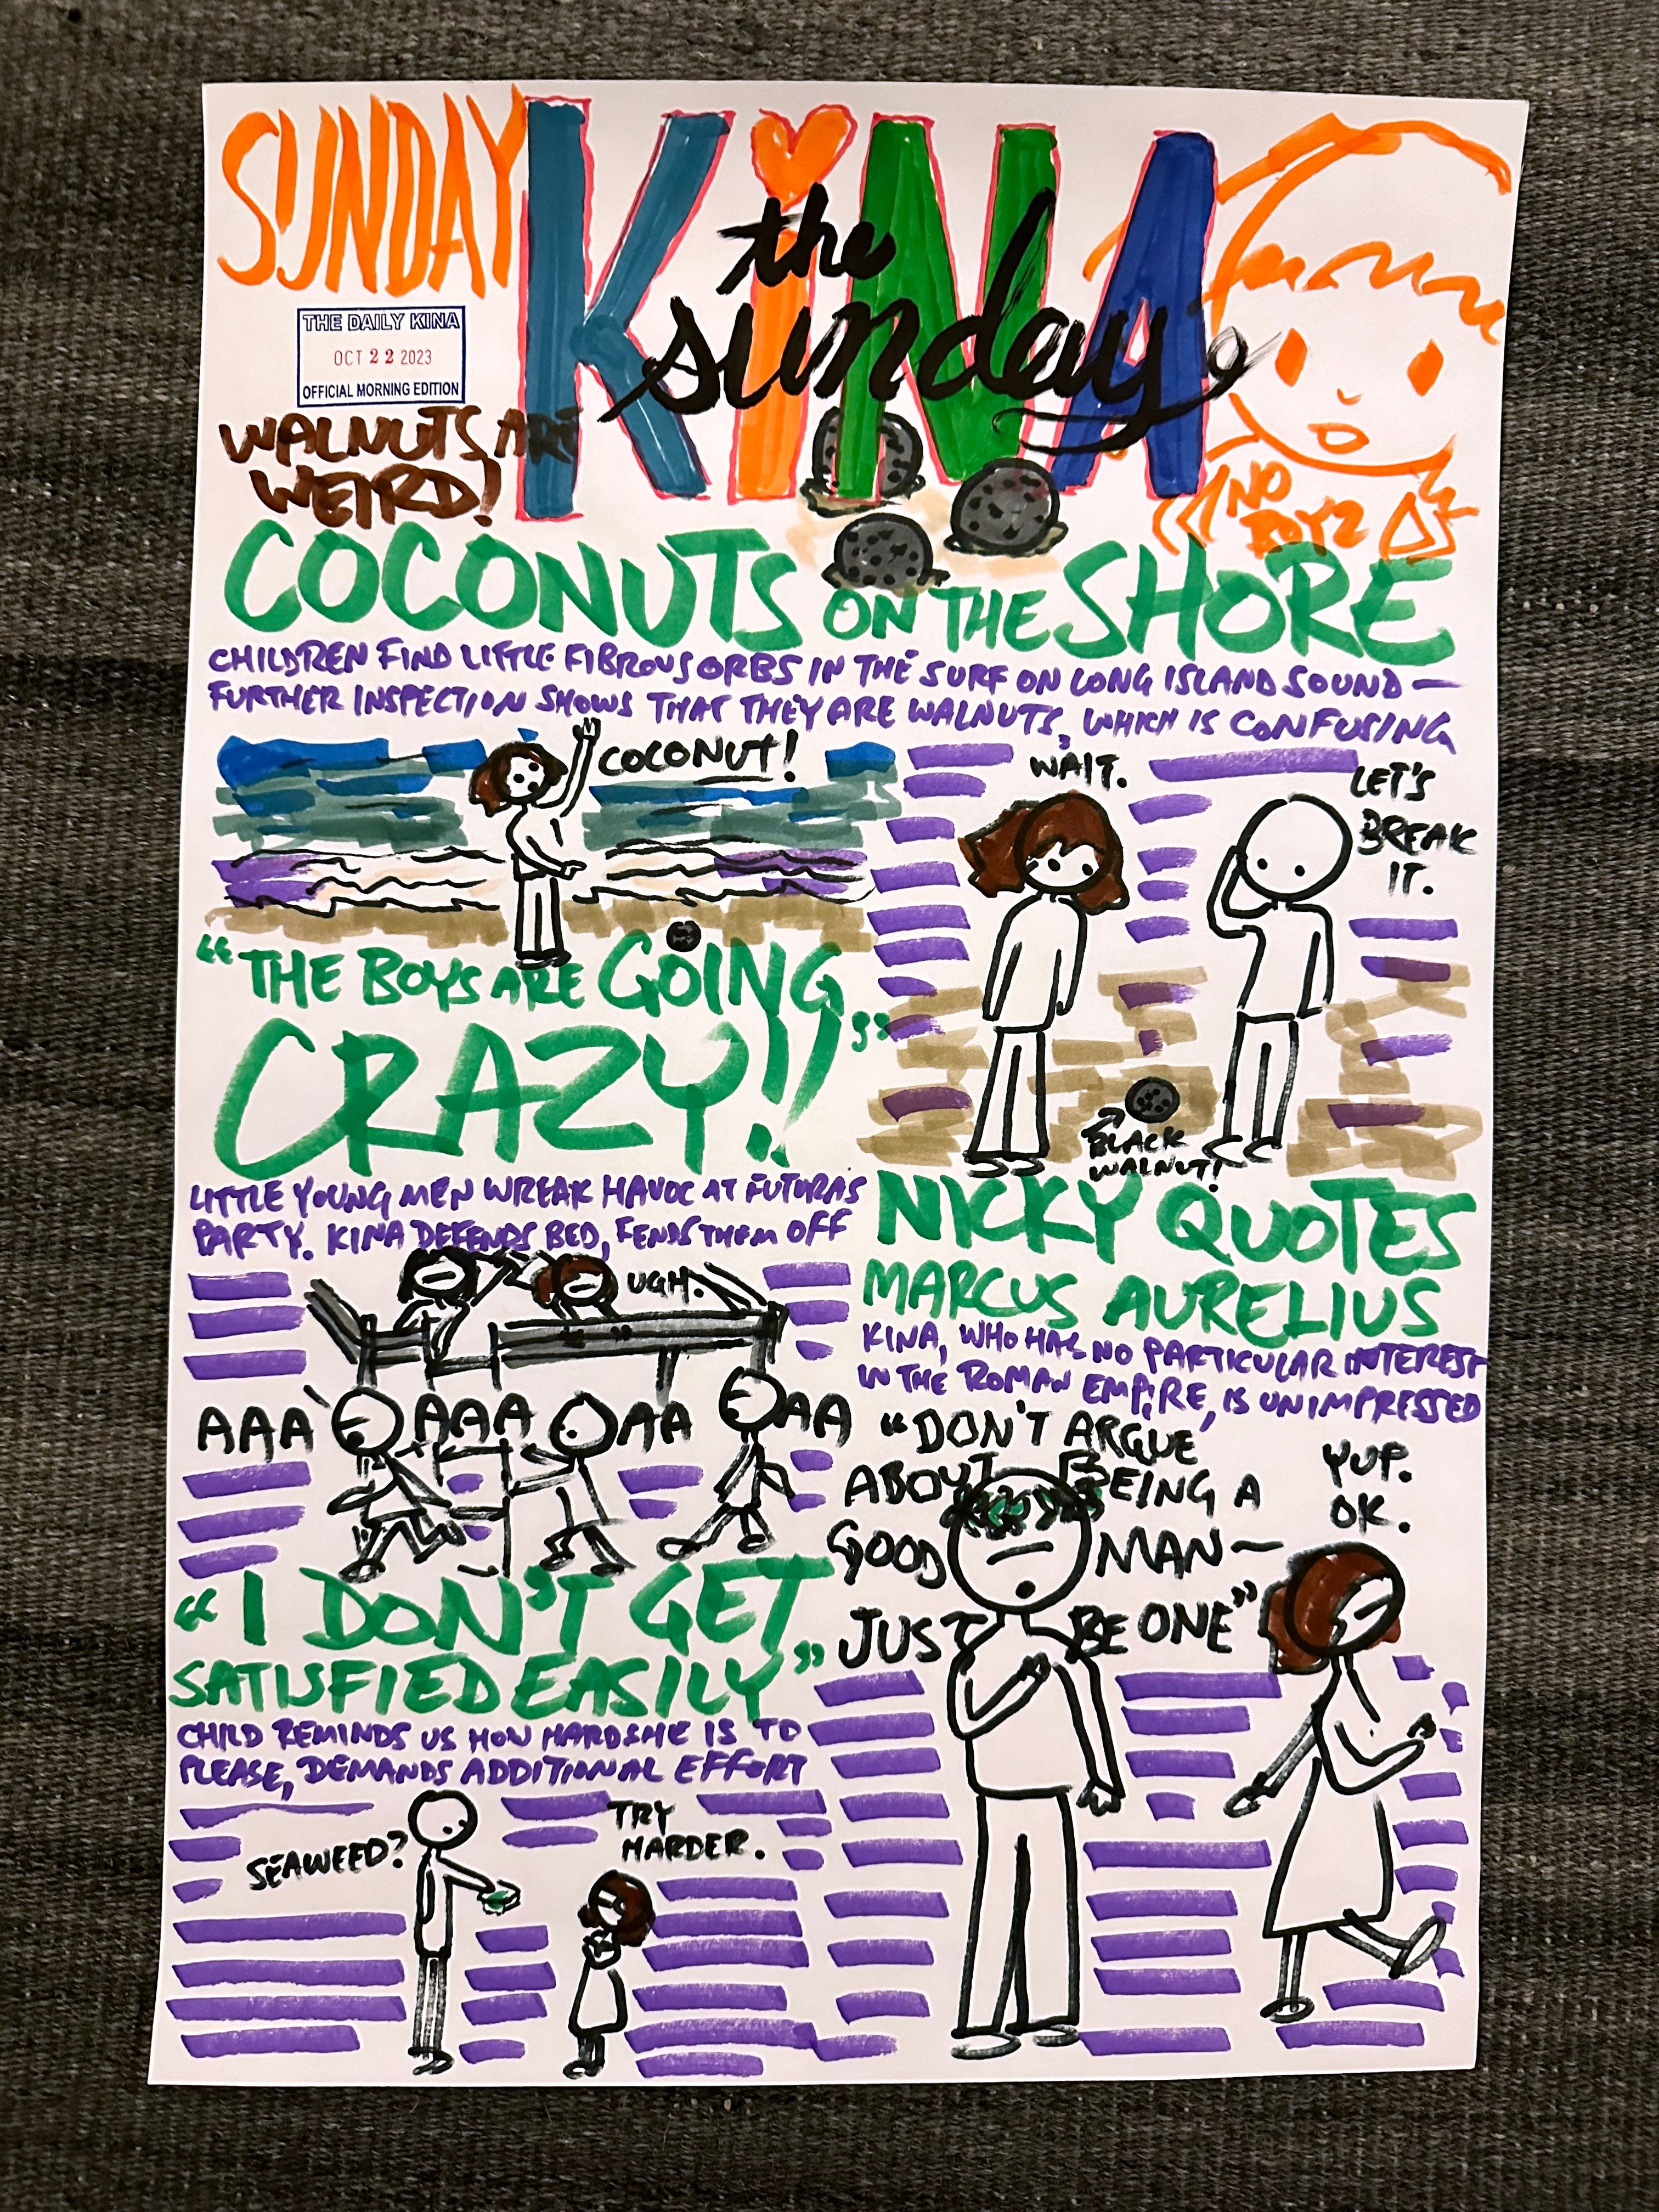 SUNDAY
KiNA
the
sunday
THE DAILY KINA
OCT 22 2023
OFFICIAL MORNING EDITION
WALNUTS ARE
WEIRD!
NO
BOYZ
COCONUTS ON THE SHORE
CHILDREN FIND LITTLE FIBROUS ORBS IN THE SURF ON LONG ISLAND SOUND —
FURTHER INSPECTION SHOWS THAT THEY ARE WALNUTS, WHICH IS CONFUSING
COCONUT!
WAIT.
LET'S
BREAK
IT.
BLACK
WALNUT!
"THE BOYS ARE GOING
CRAZY!!"
LITTLE YOUNG MEN WREAK HAVOC AT FUTURA'S
PARTY. KINA DEFENDS BED, FENDS THEM OFF
UGH.
AAA AAA AA AA
NICKY QUOTES
MARCUS AURELIUS
KINA, WHO HAS NO PARTICULAR INTEREST
IN THE ROMAN EMPIRE, IS UNIMPRESSED
"DON'T ARGUE
ABOUT BEING A
GOOD MAN—
JUST BE ONE"
YUP.
OK.
"I DON'T GET
SATISFIED EASILY"
CHILD REMINDS US HOW HARD SHE IS TO
PLEASE, DEMANDS ADDITIONAL EFFORT
SEAWEED?
TRY
HARDER.